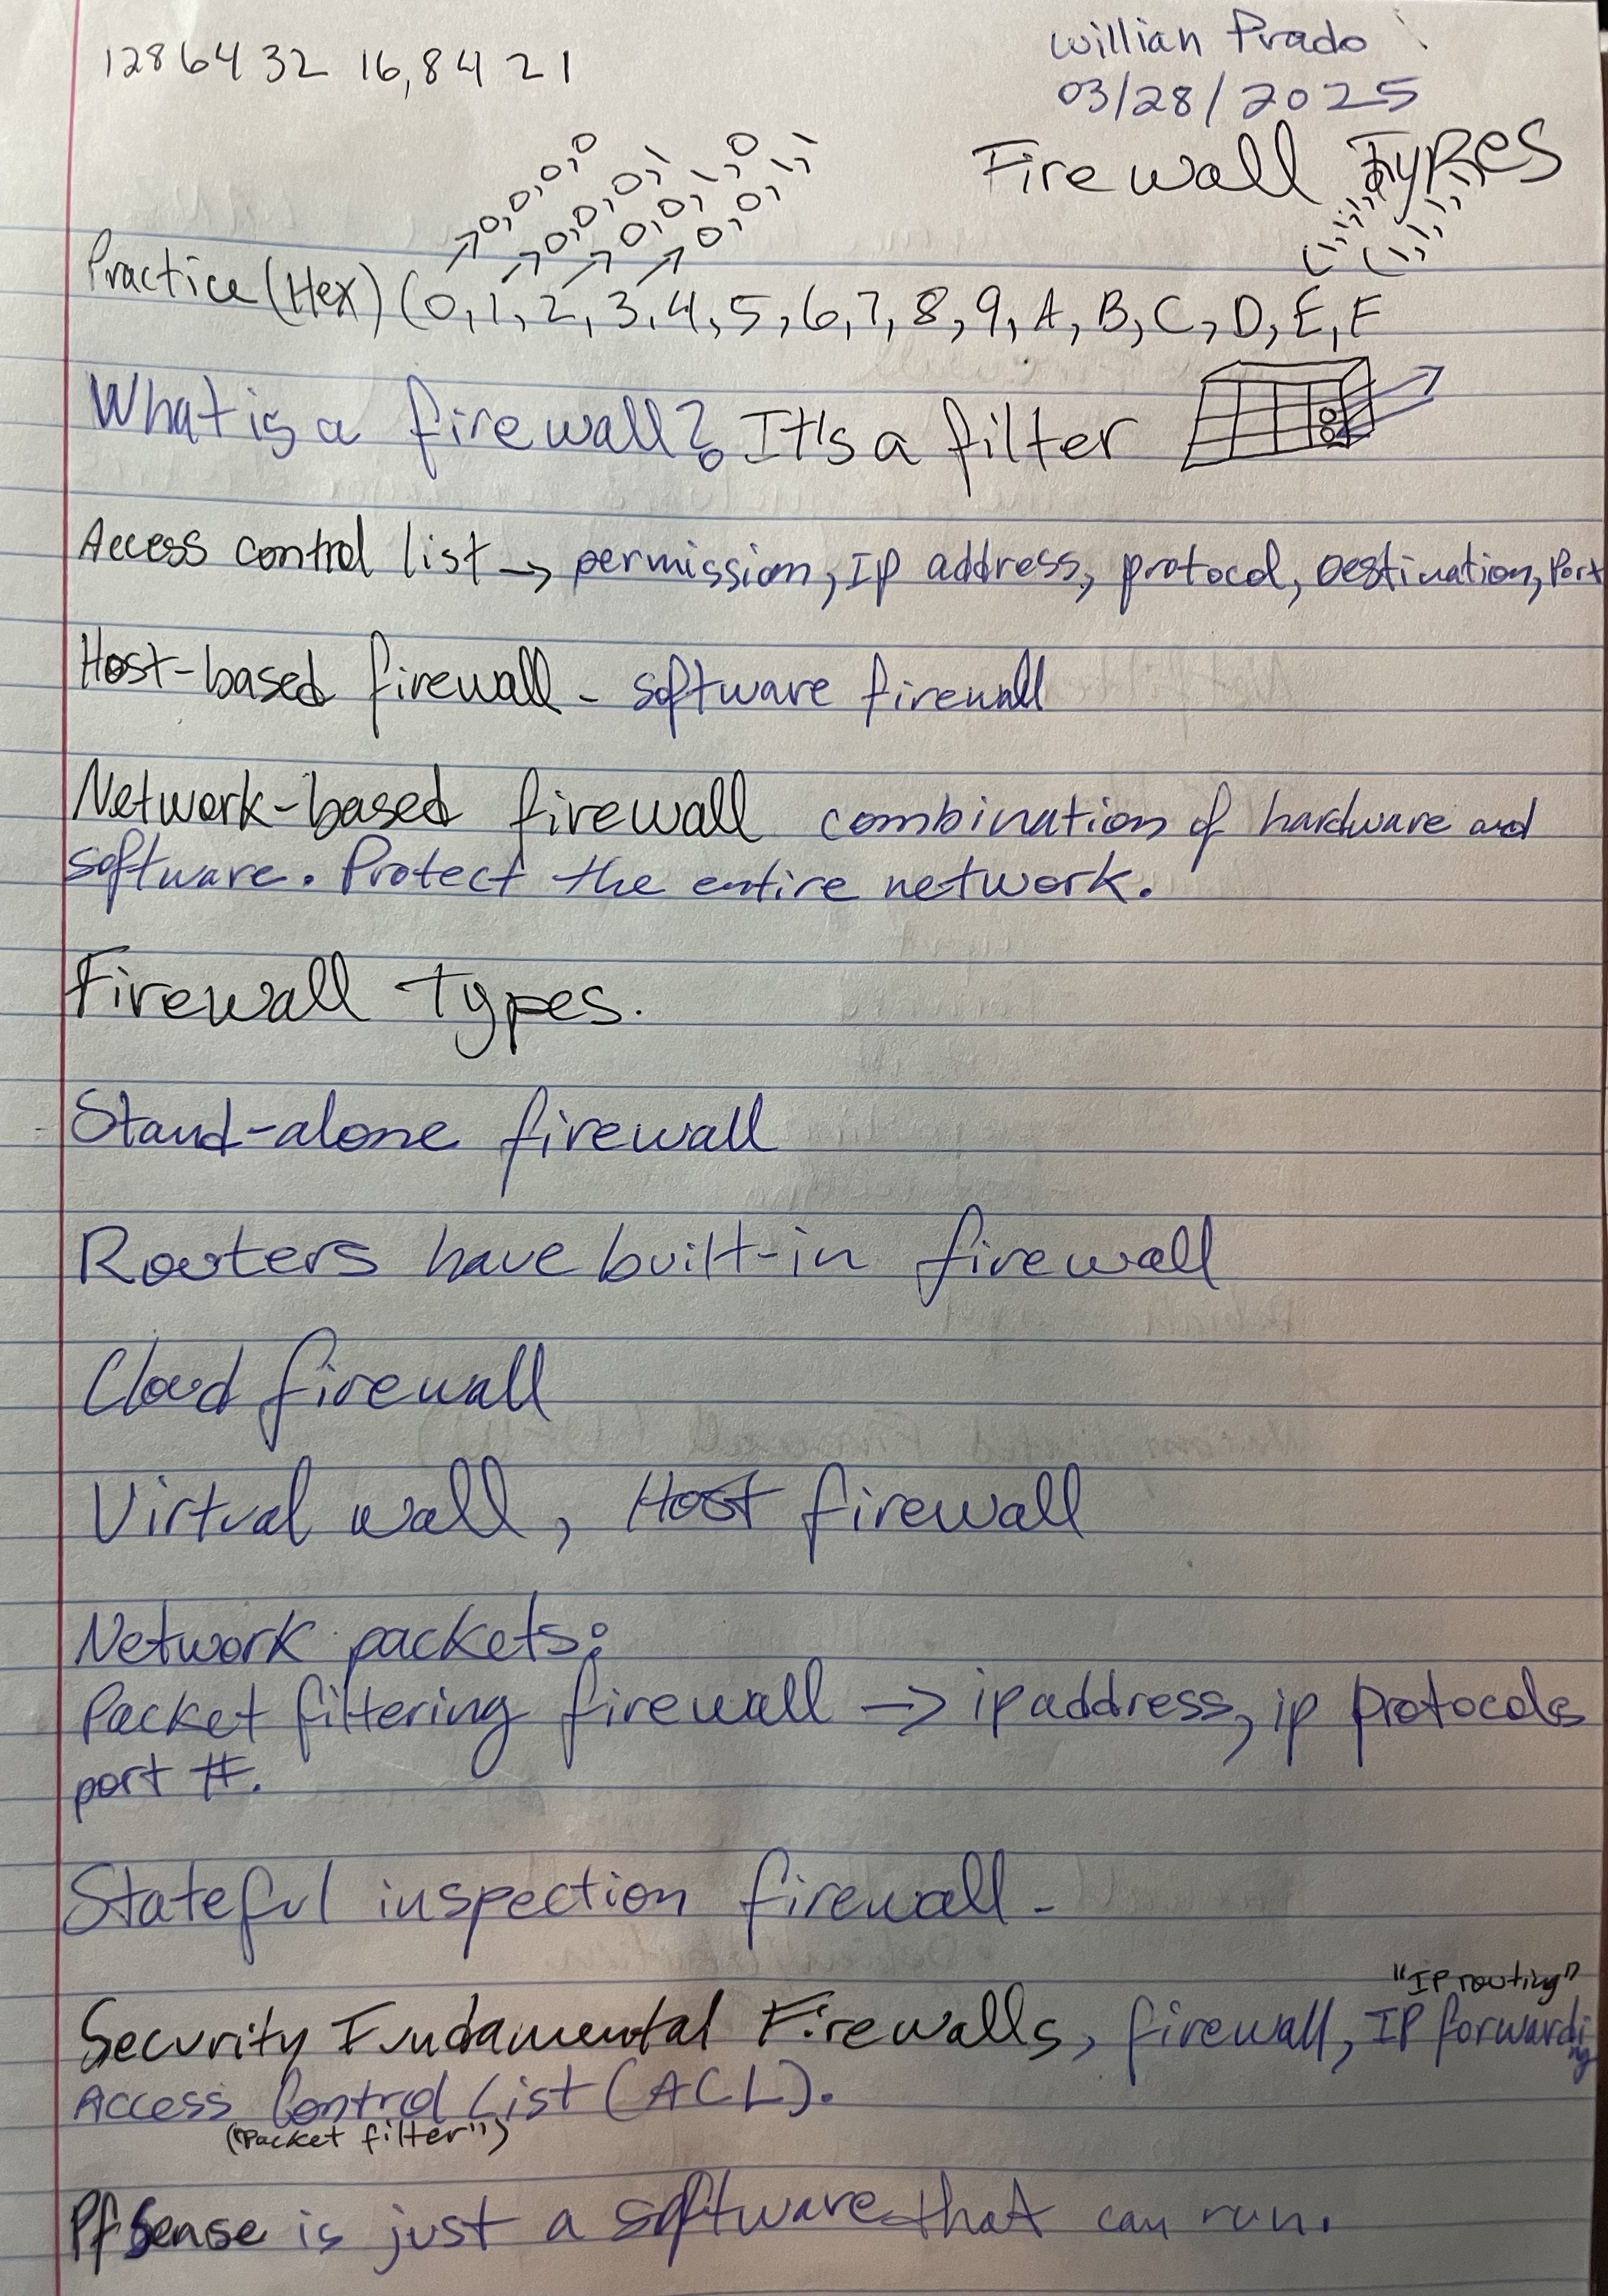 willian Prado
03/28/2025
128 64 32 16,84 21
Firewall Types
0,0,0,0
0,0,0,1
0,0,1,0
0,0,1,1
1,1,1,0
1,1,1,1
Practice (Hex) (0,1,2,3,4,5,6,7,8,9,A,B,C,D,E,F
What is a firewall? It's a filter
Access control list → permission, IP address, protocol, Destination, Port
Host-based firewall - software firewall
Network-based firewall combination of hardware and
software. Protect the entire network.
Firewall Types.
Stand-alone firewall
Routers have built-in firewall
Cloud firewall
Virtual wall, Host firewall
Network packets:
Packet filtering firewall → ip address, ip protocols
port #.
Stateful inspection firewall -
"IP routing"
Security Fundamental Firewalls, firewall, IP forwarding
Access Control List (ACL).
("Packet filter")
Pfsense is just a software that can run.